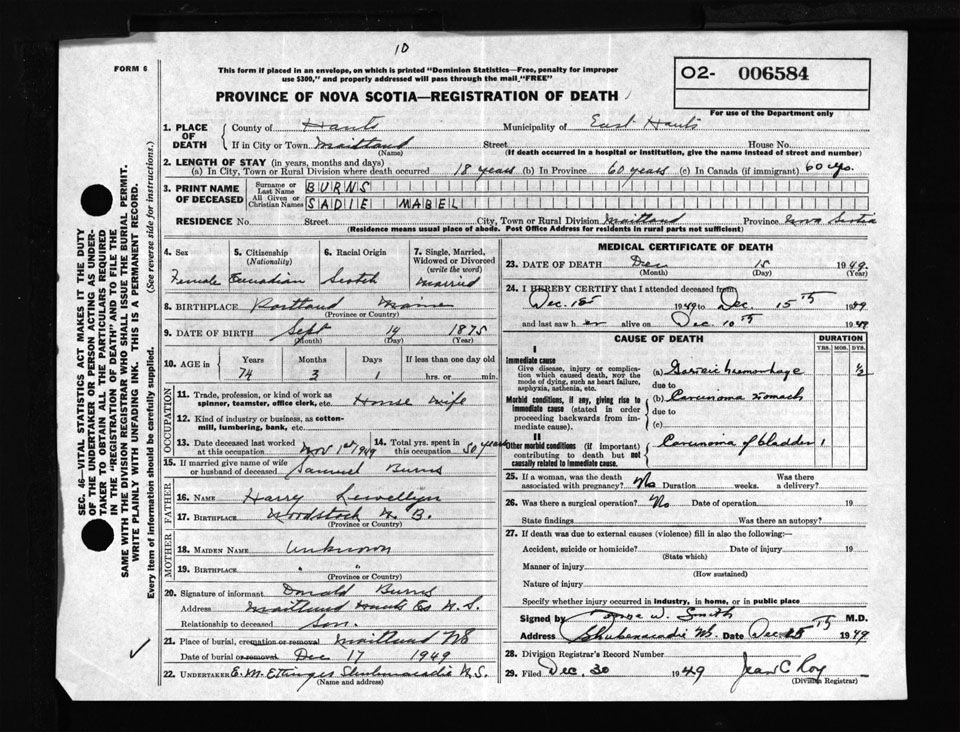 10
FORM 6
This form if placed in an envelope, on which is printed "Dominion Statistics—Free, penalty for improper
use $300," and properly addressed will pass through the mail "FREE"
PROVINCE OF NOVA SCOTIA—REGISTRATION OF DEATH
O2- 006584
For use of the Department only
SEC. 46—VITAL STATISTICS ACT MAKES IT THE DUTY
OF THE UNDERTAKER OR PERSON ACTING AS UNDER-
TAKER TO OBTAIN ALL THE PARTICULARS REQUIRED
IN THE "REGISTRATION OF DEATH" AND TO FILE THE
SAME WITH THE DIVISION REGISTRAR WHO SHALL ISSUE THE BURIAL PERMIT.
WRITE PLAINLY WITH UNFADING INK. THIS IS A PERMANENT RECORD.
Every item of information should be carefully supplied. (See reverse side for instructions.)
1. PLACE OF DEATH
County of Hants Municipality of East Hants
If in City or Town Maitland Street House No.
(Name) (If death occurred in a hospital or institution, give the name instead of street and number)
2. LENGTH OF STAY (in years, months and days)
(a) In City, Town or Rural Division where death occurred 18 years (b) In Province 60 years (c) In Canada (if immigrant) 60 yrs.
3. PRINT NAME OF DECEASED
Surname or Last Name BURNS
All Given or Christian Names SADIE MABEL
RESIDENCE No. Street City, Town or Rural Division Maitland Province Nova Scotia
(Residence means usual place of abode. Post Office Address for residents in rural parts not sufficient)
4. Sex 5. Citizenship (Nationality) 6. Racial Origin 7. Single, Married, Widowed or Divorced (write the word)
Female Canadian Scotch Married
8. BIRTHPLACE Portland Maine
(Province or Country)
9. DATE OF BIRTH Sept 14 1875
(Month) (Day) (Year)
10. AGE in Years Months Days If less than one day old
74 3 1 hrs. or min.
OCCUPATION
11. Trade, profession, or kind of work as
spinner, teamster, office clerk, etc. House Wife
12. Kind of industry or business, as cotton-
mill, lumbering, bank, etc.
13. Date deceased last worked at this occupation Nov 1st 1949 14. Total yrs. spent in this occupation 50 years
15. If married give name of wife
or husband of deceased Samuel Burns
FATHER
16. NAME Harry Lewellyn
17. BIRTHPLACE Woodstock N. B.
(Province or Country)
MOTHER
18. MAIDEN NAME Unknown
19. BIRTHPLACE " "
(Province or Country)
20. Signature of informant Donald Burns
Address Maitland Hants Co N.S.
Relationship to deceased Son.
21. Place of burial, cremation or removal Maitland NS
Date of burial or removal Dec 17 1949
22. UNDERTAKER E. M. Ettinger Shubenacadie N.S.
(Name and address)
MEDICAL CERTIFICATE OF DEATH
23. DATE OF DEATH Dec 15 1949.
(Month) (Day) (Year)
24. I HEREBY CERTIFY that I attended deceased from
Dec. 1st 1949 to Dec. 15th 1949
and last saw her alive on Dec. 10th 1949
CAUSE OF DEATH DURATION
YRS. MOS. DYS.
I
Immediate cause
Give disease, injury or complica-
tion which caused death, not the
mode of dying, such as heart failure,
asphyxia, asthenia, etc.
(a) Gastric haemorrhage ½
due to
Morbid conditions, if any, giving rise to
immediate cause (stated in order
proceeding backwards from im-
mediate cause).
(b) Carcinoma stomach
due to
(c)
II
Other morbid conditions (if important)
contributing to death but not
causally related to immediate cause.
Carcinoma of bladder 1
25. If a woman, was the death associated with pregnancy? No Duration weeks. Was there a delivery?
26. Was there a surgical operation? No Date of operation 19
State findings Was there an autopsy?
27. If death was due to external causes (violence) fill in also the following:—
Accident, suicide or homicide? Date of injury 19
(State which)
Manner of injury
(How sustained)
Nature of injury
Specify whether injury occurred in industry, in home, or in public place
Signed by W. Smith M.D.
Address Shubenacadie NS. Date Dec 15th 1949
28. Division Registrar's Record Number
29. Filed Dec. 30 1949 Jean C Roy
(Division Registrar)